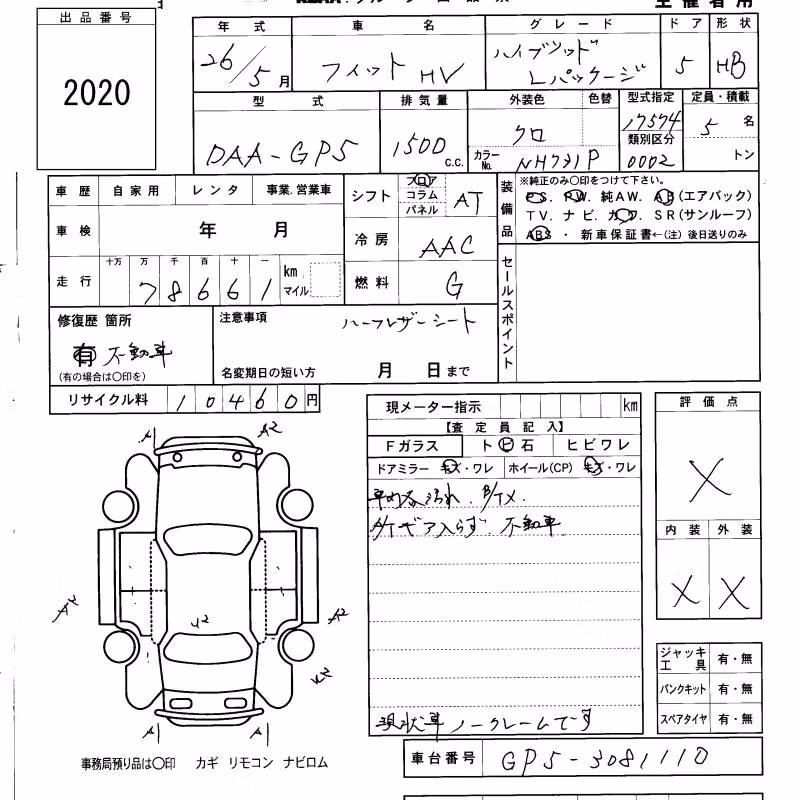 出品番号
2020
年式 車名 グレード ドア 形状
26/5月 フィット HV ハイブリッド Lパッケージ 5 HB
型式 排気量 外装色 色替 型式指定 定員・積載
DAA-GP5 1500 C.C. クロ カラーNo. NH731P 17574 類別区分 0002 5名 トン
車歴 自家用 レンタ 事業.営業車
車検 年 月
走行 十万 万 千 百 十 一 km マイル
78661
シフト フロア コラム パネル AT
冷房 AAC
燃料 G
装備品
※純正のみ〇印をつけて下さい。
PS. PW. 純AW. AB(エアバック)
TV. ナビ. カワ. SR(サンルーフ)
ABS ・ 新車保証書←(注) 後日送りのみ
セールスポイント
修復歴 箇所
有 不動車
(有の場合は〇印を)
注意事項
ハーフレザーシート
名変期日の短い方 月 日まで
リサイクル料 10460円
現メーター指示 km
【査定員記入】
Fガラス ト ビ 石 ヒビワレ
ドアミラー キズ・ワレ ホイール(CP) キズ・ワレ
汚れ
A/Tギア入らず 不動車
現状車 ノークレームです
評価点
X
内装 外装
X X
ジャッキ工具 有・無
パンクキット 有・無
スペアタイヤ 有・無
A A2
A2 U2 A2
A A
事務局預り品は〇印 カギ リモコン ナビロム
車台番号 GP5-3081110